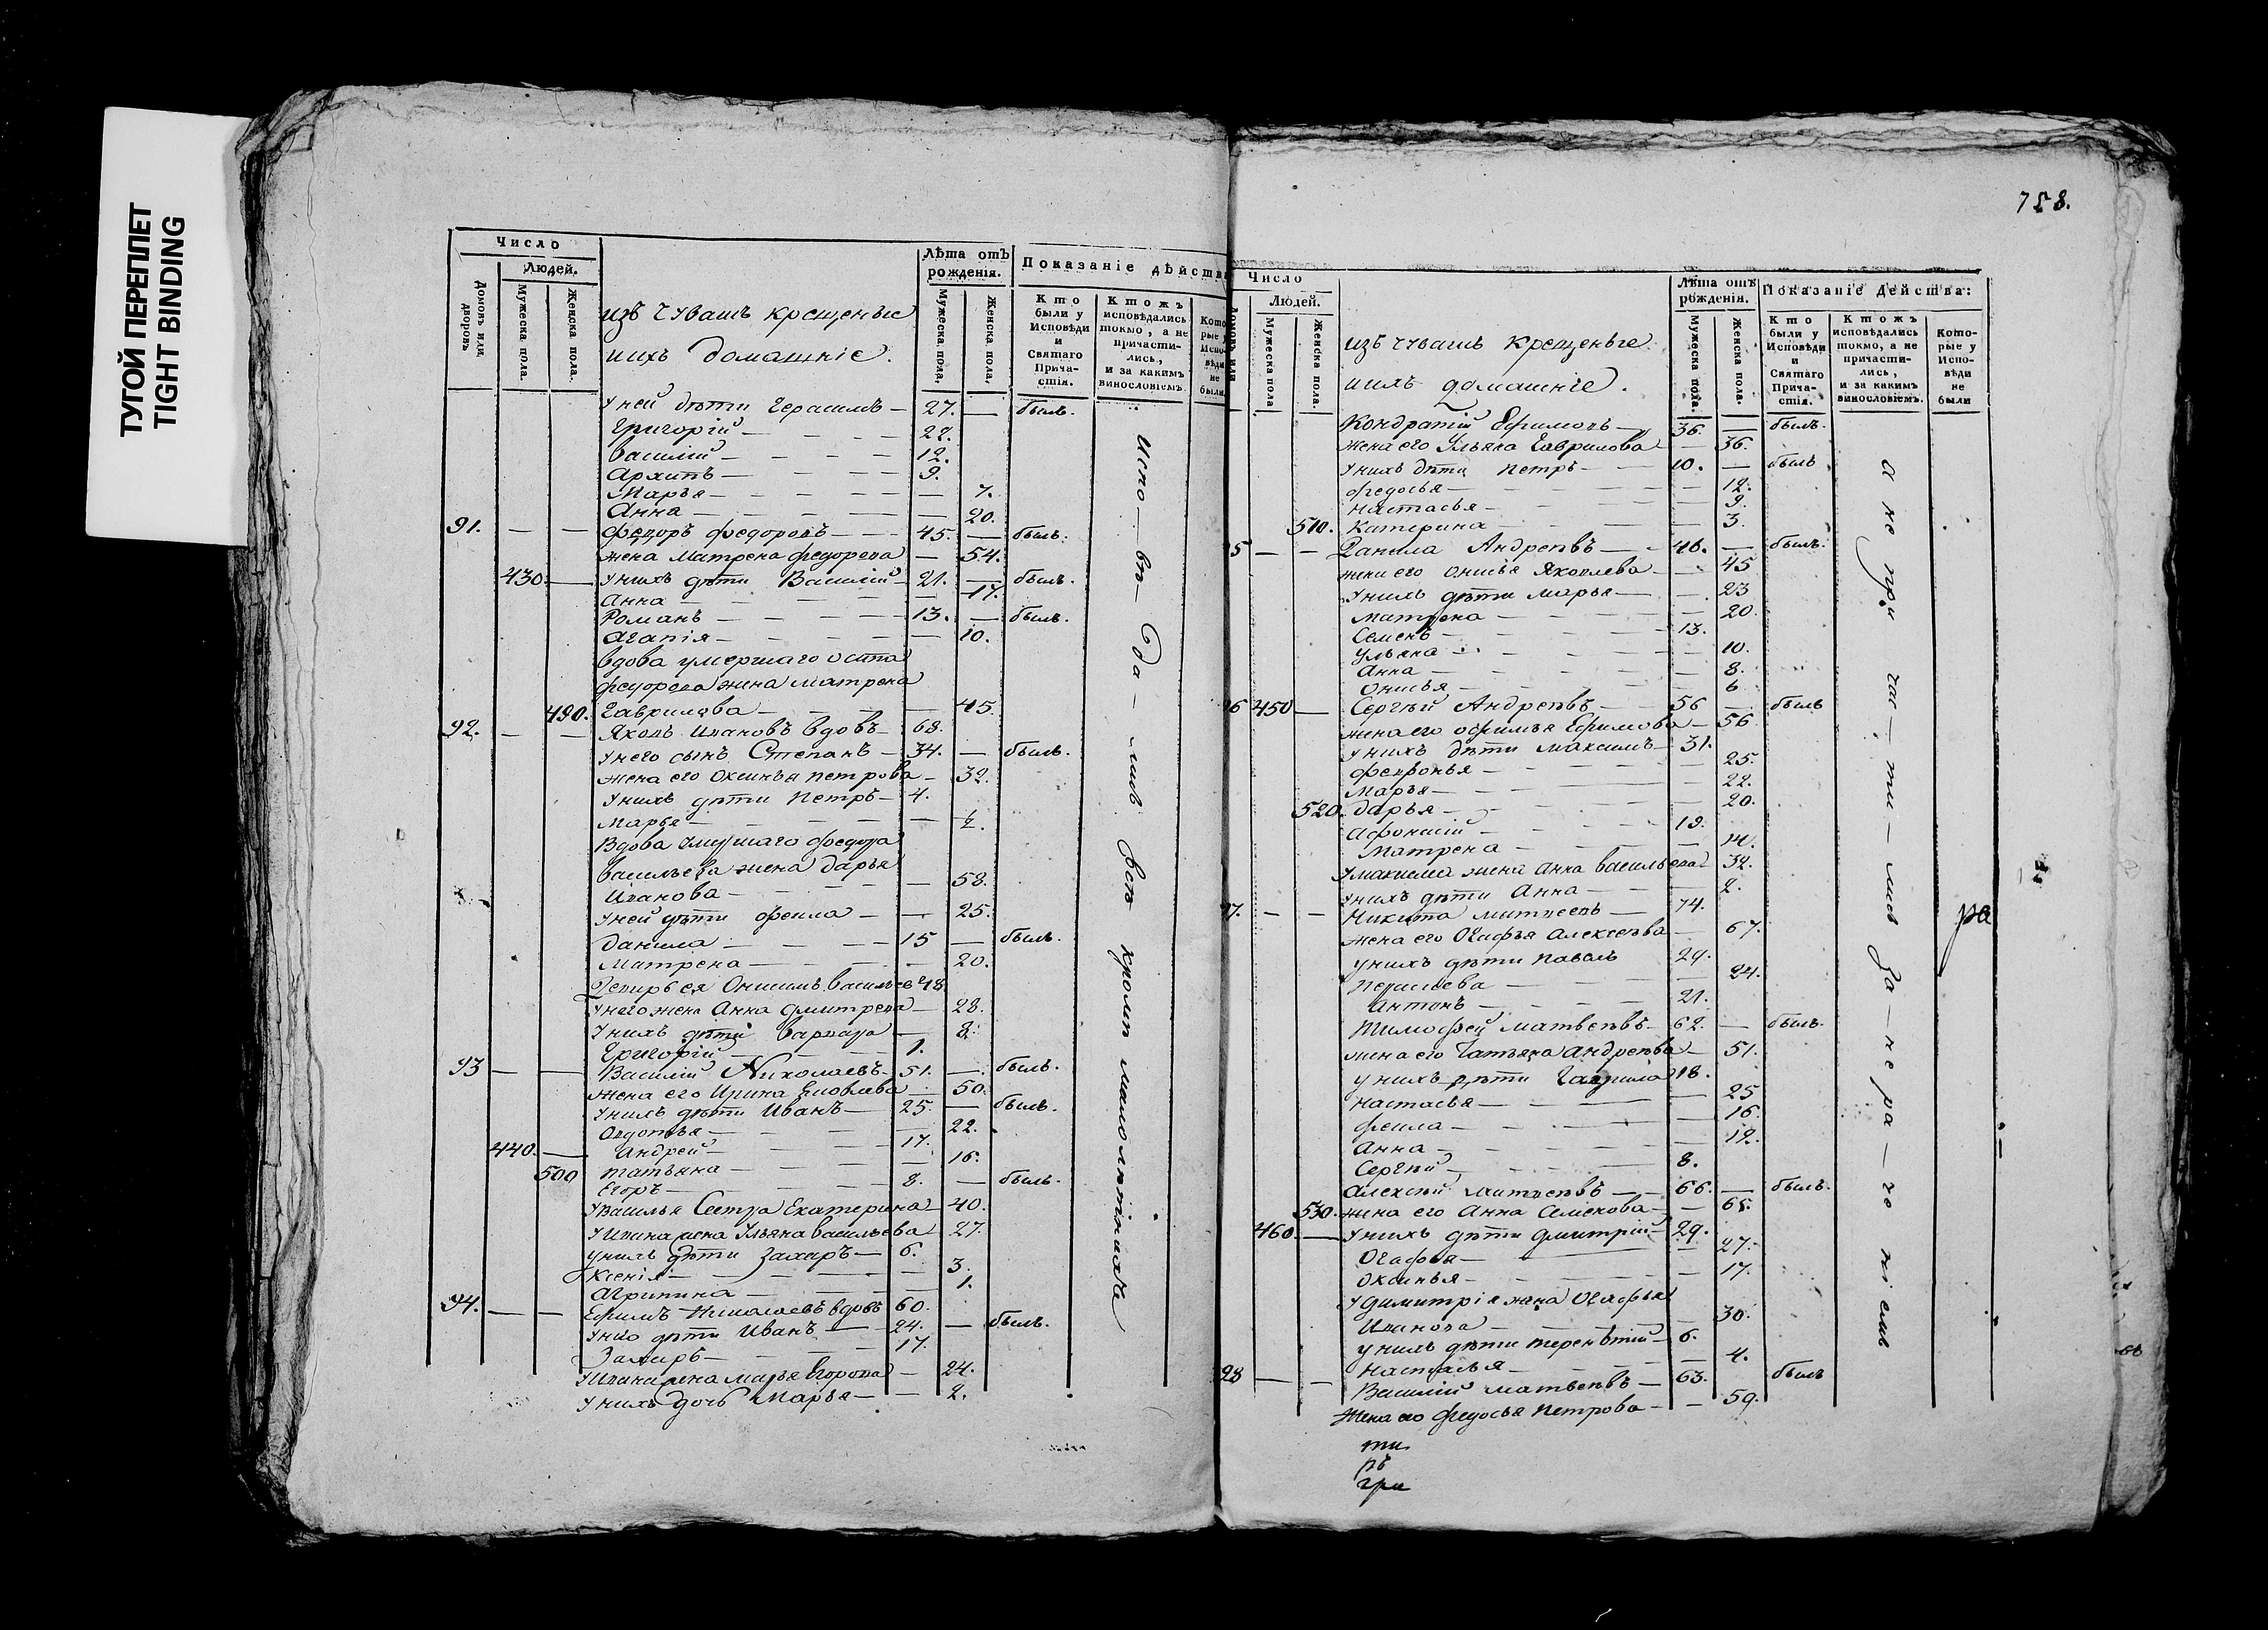 ТУГОЙ ПЕРЕПЛЕТ
TIGHT BINDING
Число
Людей.
Домовъ или дворовъ
Мужеска пола.
Женска пола.
изъ чувашъ крещеные
ихъ домашніе.
Лѣта отъ рожденія.
Мужеска пола,
Женска пола,
Показаніе дѣйства
Кто были у Исповѣди и Святаго Причастія.
Ктожъ исповѣдались токмо, а не причастились, и за какимъ винословіемъ.
Которые у Исповѣди не были
Уней дѣти Герасимъ — 27. — былъ.
Григорій — 22.
Василій — 12.
Архипъ — 9.
Марья — 7.
Анна — 20.
91. — — Федоръ Федоровъ — 45. — былъ.
жена Матрена Федорова — 54.
430. — Унихъ дѣти Василій — 21. — былъ.
Анна — 17.
Романъ — 13. — былъ.
Агапія — 10.
вдова умершаго
Федорова жена Матрена
490. Гаврилова — 45.
92. — — Яковъ Ивановъ вдовъ — 68.
Унего сынъ Степанъ — 34. — былъ.
жена его Оксинья Петрова — 32.
Унихъ дѣти Петръ — 4.
Марья —
Вдова умершаго Федора
Васильева жена Дарья
Иванова — 58.
Уней дѣти Фекла — 25.
Данила — 15 — былъ.
Матрена — 20.
Онисимъ Васильевъ 48.
Унего жена Анна Дмитрева — 28.
Унихъ дѣти Варвара — 8.
Григорій — 1.
93 — — Василій Николаевъ — 51. — былъ.
жена его Ирина Яковлева — 50.
Унихъ дѣти Иванъ — 25. — былъ.
Овдотья — 22.
440. — Андрей — 17.
500 Татьяна — 16.
Егоръ — 8. — былъ.
УВасилья Сестра Екатерина — 40.
УИвана жена Ульяна Васильева 27.
Унихъ дѣти Захаръ — 6.
Ксенія — 3.
Агрипина — 1.
94. — — Ефимъ Николаевъ вдовъ 60.
Унего дѣти Иванъ — 24. — былъ.
Захаръ — 17.
УИвана жена Марья Егорова — 24.
Унихъ дочь Марья — 2.
Испо — вѣ — да — лись всѣ кромѣ малолѣтныхъ
758.
Число
Людей.
Мужеска пола
Женска пола.
изъ чувашъ крещеные
ихъ домашніе.
Лѣта отъ рожденія.
Мужеска пола.
Женска пола.
Показаніе дѣйства:
Кто были у Исповѣди и Святаго Причастія.
Ктожъ исповѣдались токмо, а не причастились, и за какимъ винословіемъ.
Которые у Исповѣди не были
Кондратій Ефимовъ — 36. — былъ.
жена его Ульяна Гаврилова — 36.
Унихъ дѣти Петръ — 10. — былъ
Федосья — 12.
Настасья — 9.
510. Катерина — 3.
5 — — Данила Андреевъ — 46. — былъ.
жена его Онисья Яковлева — 45
Унихъ дѣти Марья — 23
Матрена — 20.
Семенъ — 13.
Ульяна — 10.
Анна — 8.
Онисья — 6
96 450 — Сергѣй Андреевъ — 56 — былъ
жена его Офимья Ефимова — 56
Унихъ дѣти Максимъ — 31.
Февронья — 25.
Марья — 22.
520. Дарья — 20.
Афонасій — 19.
Матрена — 14.
УМаксима жена Анна Васильева 32.
Унихъ дѣти Анна — 2.
97. — — Никита Матвеевъ — 74.
жена его Огафья Алексеева — 67.
Унихъ дѣти Павелъ 29.
24.
Антонъ — 21.
Тимофей Матвеевъ — 62. — былъ.
жена его Татьяна Андреева — 51.
Унихъ дѣти Гаврила 18.
Настасья — 25
Фекла — 16.
Анна — 12.
Сергѣй — 8.
Алексѣй Матвеевъ — 66. — былъ.
530. жена его Анна Семенова — 65.
460. — Унихъ дѣти Дмитрій — 29.
Огафья — 27.
Оксинья — 17.
УДимитрія жена Огафья
Иванова — 30.
Унихъ дѣти Терентій — 6.
Наталья — 4.
98 — — Василій Матвеевъ — 63. былъ
Жена его Федосья Петрова — 59.
а не при ча — сти — лись за — не ра — че ніемъ
ра
ти
ръ
гри